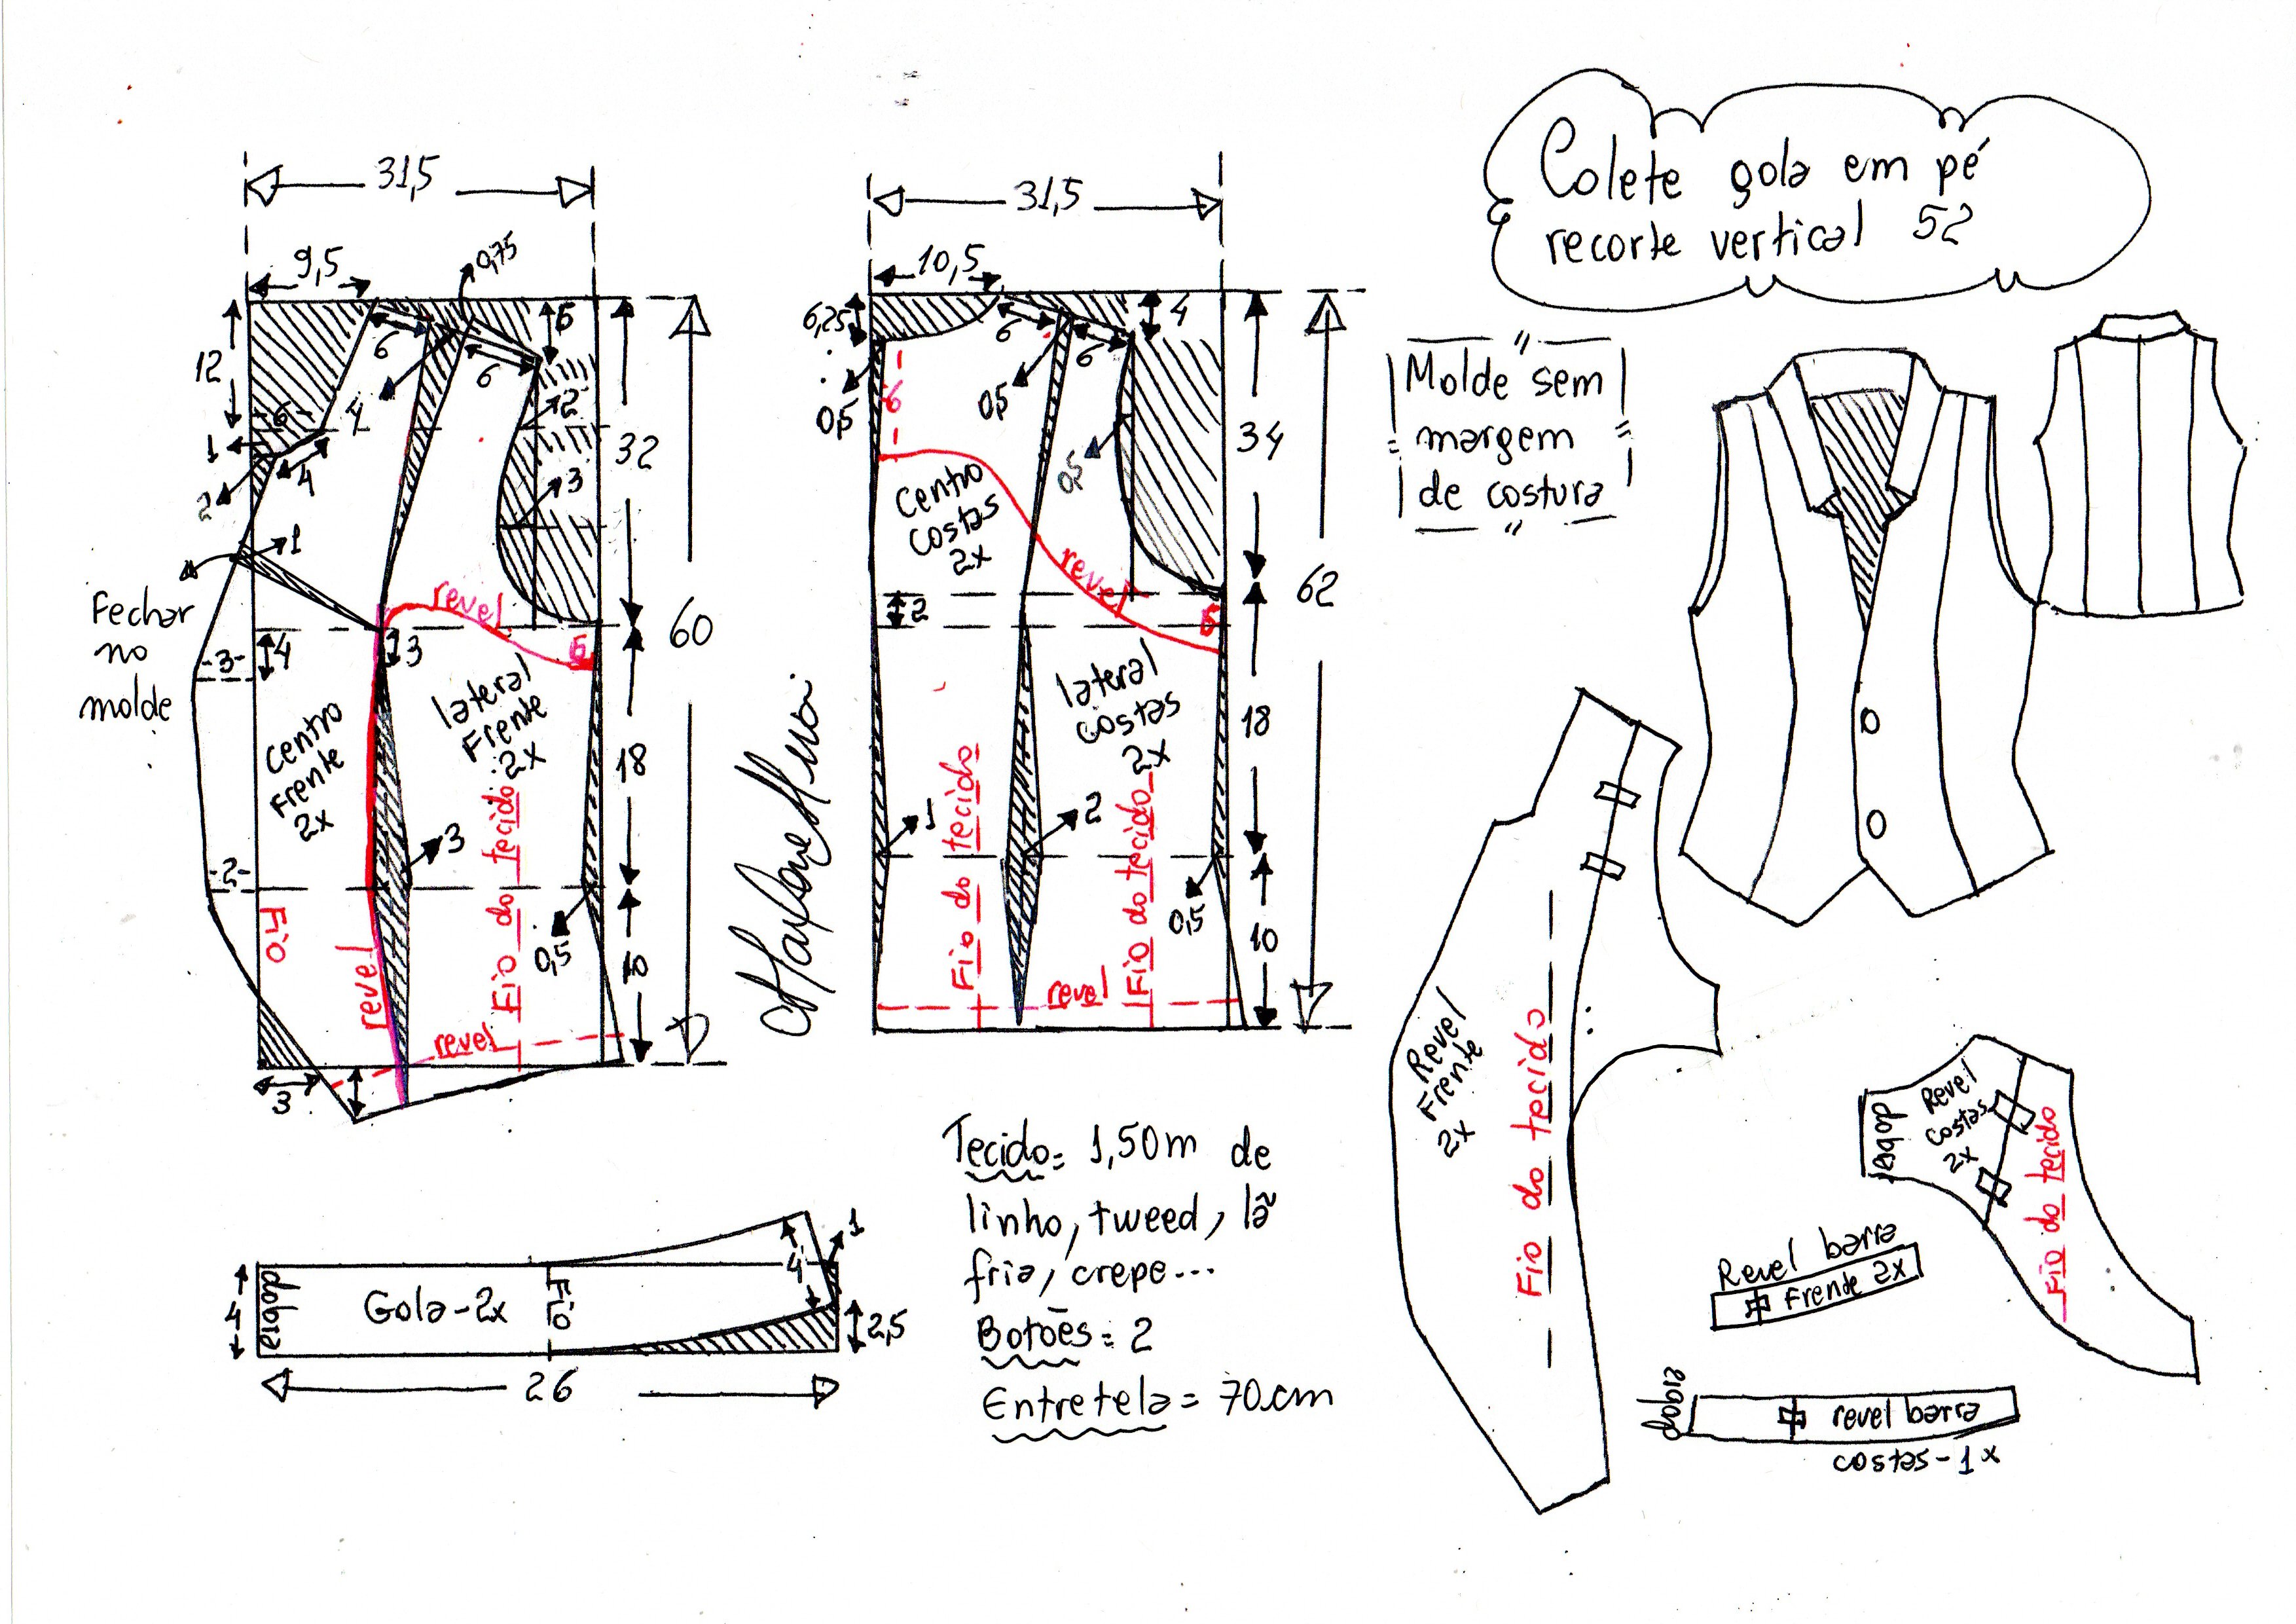 Colete gola em pé
recorte vertical 52
Molde sem
margem
de costura
31,5
9,5
0,75
12
6
6
5
6
4
1
4
2
2
3
32
1
Fechar
no
molde
4
3
3
revel
5
60
Centro
Frente
2x
lateral
Frente
2x
18
3
2
Fio
revel
Fio do tecido
0,5
10
revel
3
31,5
10,5
6,25
6
4
6
0,5
6
0,5
0,5
34
Centro
Costas
2x
revel
2
5
62
lateral
costas
2x
18
1
2
Fio do tecido
Fio do tecido
0,5
10
revel
4
dobra
Gola-2x
Fio
4
1
2,5
26
Tecido= 1,50m de
linho, tweed, lã
fria, crepe...
Botões= 2
Entretela= 70cm
Revel
Frente
2x
Fio do tecido
dobra
Revel
costas
2x
Fio do tecido
Revel barra
Frente 2x
dobra
revel barra
costas-1x